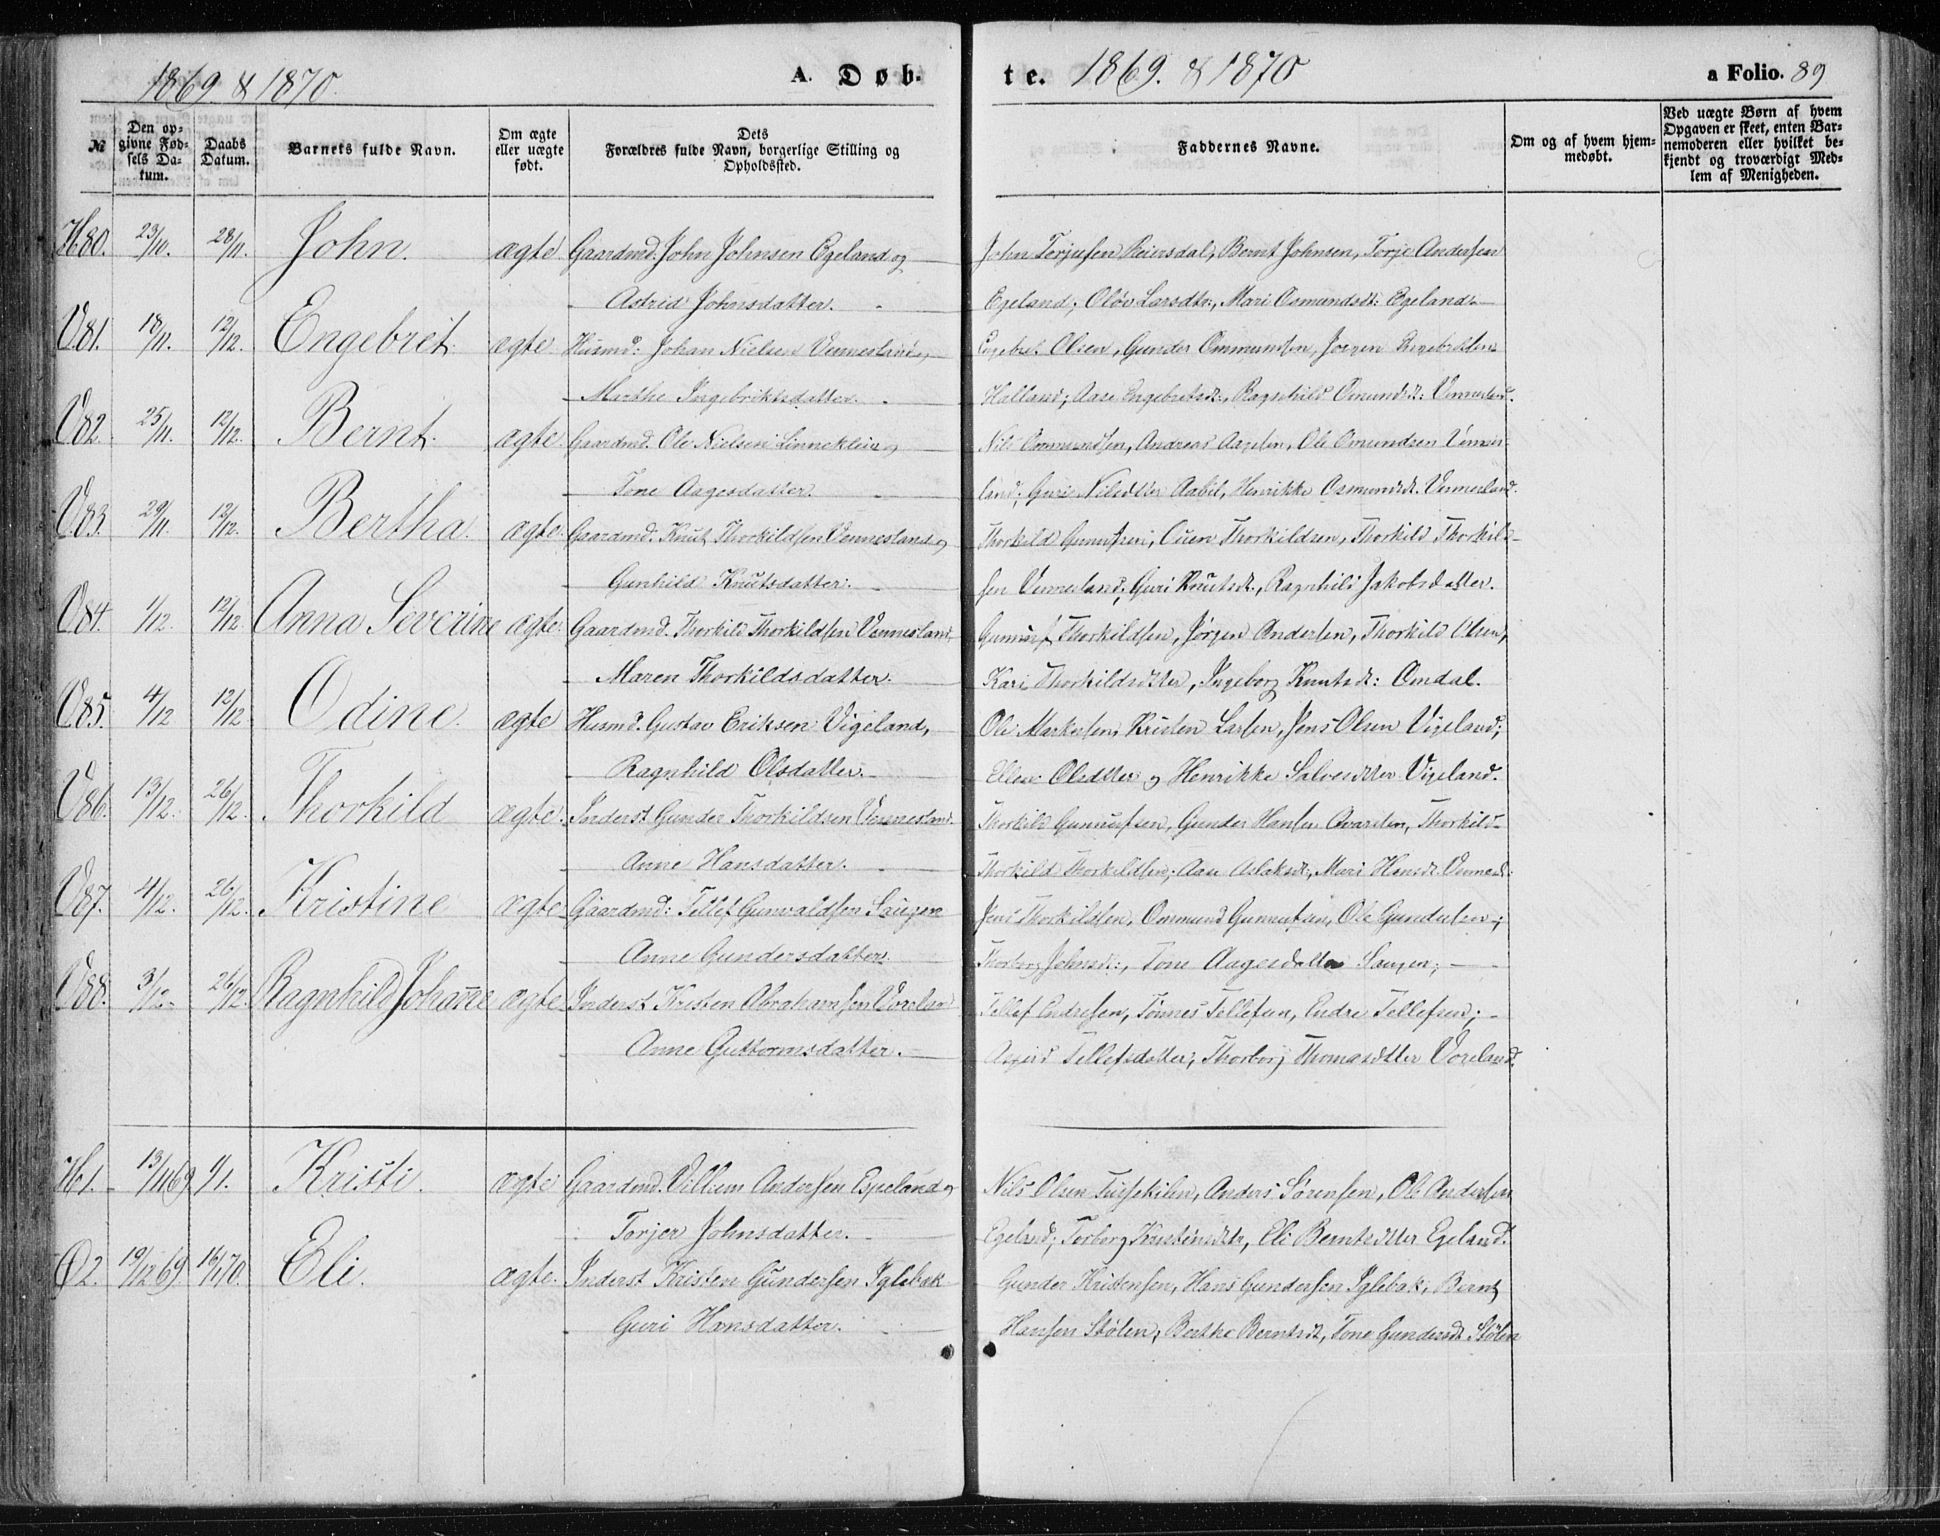 1869 & 1870.
A. Døb-
te. 1869. & 1870
a Folio. 89
№
Den op-
givne Fød-
sels Da-
tum.
Daabs
Datum.
Barnets fulde Navn.
Om ægte
eller uægte
født.
Dets
Forældres fulde Navn, borgerlige Stilling og
Opholdssted.
Faddernes Navne.
Om og af hvem hjem-
medøbt.
Ved uægte Børn af hvem
Opgaven er skeet, enten Bar-
nemoderen eller hvilket be-
kjendt og troværdigt Med-
lem af Menigheden.
H80. 23/10. 28/11. John. ægte Gaardmd: John Johnsen Egeland og
Astrid Johnsdatter.
John Torjusen Reiersdal, Bernt Johnsen, Torje Andersen
Egeland; Oløv Larsdtr., Mari Osmundsdt: Egeland.
V81. 18/11. 12/12. Engebret. ægte Husmd: Johan Nielsen Vennesland og
Marthe Ingebriktsdatter.
Engebret Olsen, Gunder Ommundsen, Jørgen Engebretsen
Halland; Aase Engebretsdt., Ragnhild Omundsdt: Vennesland.
V82. 25/11. 12/12. Bernt. ægte Gaardmd. Ole Nielsen Linnekleiv og
Tone Aagesdatter.
Nils Ommundsen, Andreas Aagesen, Ole Omundsen Vennes-
land; Guri Nilsdtter Aabel, Henrikke Osmundsdt. Vennesland.
V83. 29/11. 12/12. Bertha. ægte. Gaardmd. Knut Thorkildsen Vennesland og
Gunhild Knutsdatter.
Thorkild Gunnufsen, Ouen Thorkildsen, Thorkild Thorkild-
sen Vennesland; Guri Knutsdt., Ragnhild Jakobsdatter.
V84. 1/12. 12/12. Anna Severine ægte. Gaardmd. Thorkild Thorkildsen Vennesland,
Maren Thorkildsdatter.
Gunnuf Thorkildsen, Jørgen Andersen, Thorkild Olsen,
Kari Thorkildsdtter, Ingeborg Knutsdt: Omdal.
V85. 4/12 12/12 Odine. ægte Husmd. Gustav Eriksen Vigeland,
Ragnhild Olsdatter.
Ole Markussen, Kristen Larsen, Jens Olsen Vigeland;
Ellen Olsdtter og Henrikke Salvesdtter Vigeland.
V86. 13/12. 26/12. Thorkild ægte. Inderst Gunder Thorkildsen Vennesland.
Anne Hansdatter.
Thorkild Gunnufsen, Gunder Hansen Qvarsten, Thorkild
Thorkild Thorkildsen; Aase Aslaksdt, Mari Hansdt. Vennesl.
V87. 4/12. 26/12. Kristine ægte Gaardmd: Tellef Gunvaldsen Saugen
Anne Gundersdatter.
Jens Thorkildsen, Ommund Gunnufsen, Ole Gundersen;
Thorborg Johnsdt:, Tone Aagesdatter Saugen;
V88. 3/12. 26/12. Ragnhild Johanne ægte Inderst Kristen Abrahamsen Voreland
Anne Guttormsdatter.
Tellef Endresen, Tønnes Tellefsen, Endre Tellefsen;
Tellefsdatter, Thorborg Thomasdtter Voreland.
H1. 13/11 69 1/1. Kristi. ægte Gaardmd. Villum Andersen Espeland og
Torjer Johnsdatter.
Nils Olsen, Anders Sørensen, Ole Andersen
Egeland; Torborg Kristensdtr, Eli Berntsdtter Egeland.
Ø2. 19/12 69. 16/1 70. Eli. ægte. Inderst Kristen Gundersen Iglebak
Guri Hansdatter.
Gunder Kristensen, Hans Gundersen Iglebak, Bernt
Hansen Stølen, Berthe Berntsdt, Tone Gundersdt Stølen